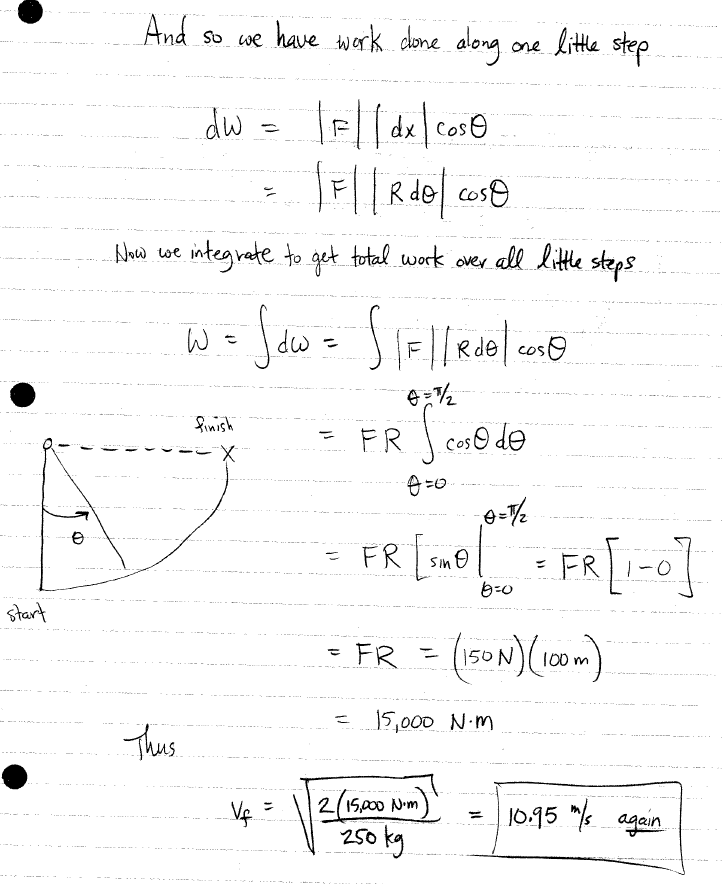 And so we have work done along one little step
dW = |F| |dx| cosθ
= |F| |R dθ| cosθ
Now we integrate to get total work over all little steps
W = ∫dW = ∫ |F| |R dθ| cosθ
θ=π/2
= FR ∫ cosθ dθ
θ=0
finish
X
θ
start
θ=π/2
= FR [sinθ| = FR [1-0]
θ=0
= FR = (150 N)(100 m)
= 15,000 N·m
Thus
Vf = √(2(15,000 N·m)/250 kg) = 10.95 m/s again